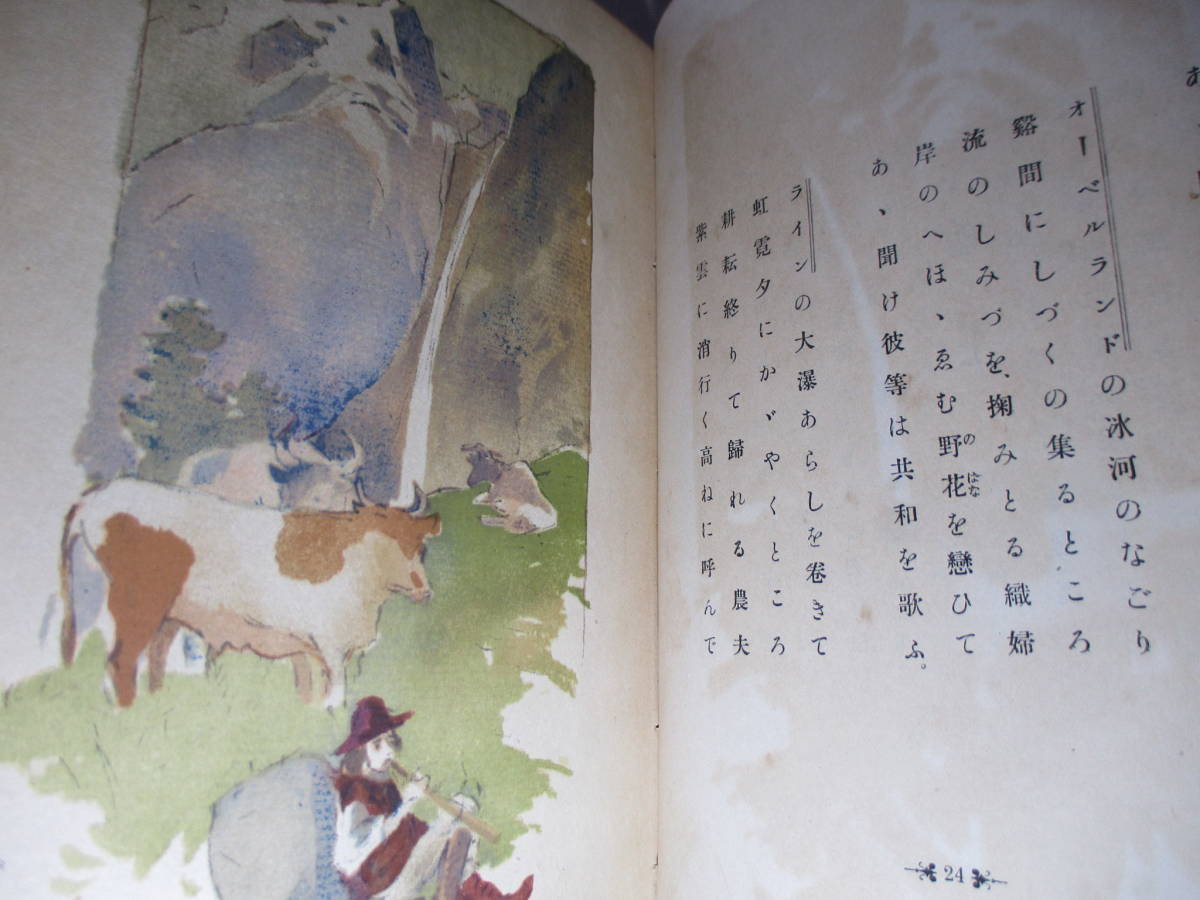 オーベルランドの氷河のなごり
谿間にしづくの集るところ
流のしみづを、掬みとる織婦
岸のへほゝゑむ野花を戀ひて
のはな
あゝ聞け彼等は共和を歌ふ。
ラインの大瀑あらしを卷きて
虹霓夕にかゞやくところ
耕耘終りて歸れる農夫
紫雲に消行く高ねに呼んで
24